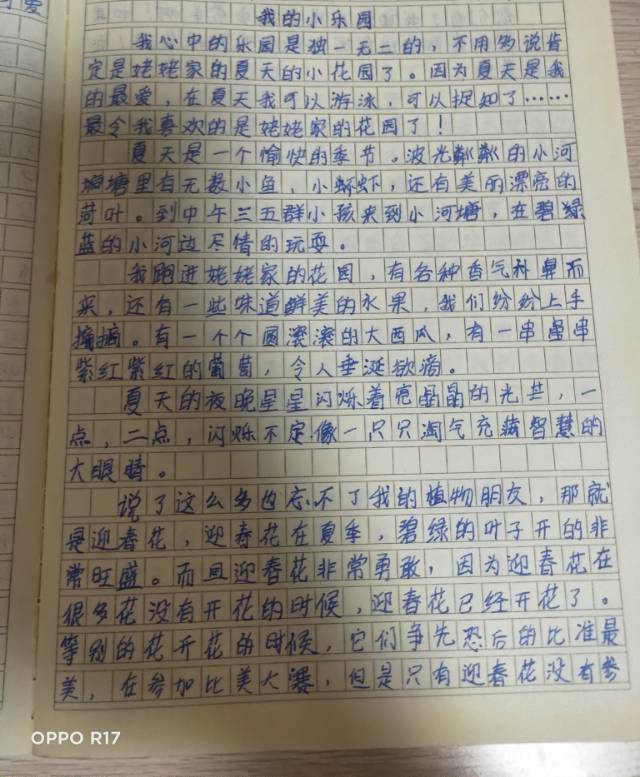 我的小乐园
我心中的乐园是独一无二的，不用多说肯
定是姥姥家的夏天的小花园了。因为夏天是我
的最爱，在夏天我可以游泳，可以捉知了……
最令我喜欢的是姥姥家的花园了！
夏天是一个愉快的季节。波光粼粼的小河
塘里有无数小鱼、小虾，还有美丽漂亮的
荷叶。到中午三五群小孩来到小河塘，在碧绿
蓝的小河边尽情的玩耍。
我跑进姥姥家的花园，有各种香气扑鼻而
来，还有一些味道鲜美的水果，我们纷纷上手
摘。有一个个圆滚滚的大西瓜，有一串串
紫红紫红的葡萄，令人垂涎欲滴。
夏天的夜晚星星闪烁着亮晶晶的光芒，一
点，二点，闪烁不定像一只只淘气充满智慧的
大眼睛。
说了这么多也忘不了我的植物朋友，那就
是迎春花，迎春花在夏季，碧绿的叶子开的非
常旺盛。而且迎春花非常勇敢，因为迎春花在
很多花没有开花的时候，迎春花已经开花了。
等别的花开花的时候，它们争先恐后的比谁最
美，在参加比美大赛，但是只有迎春花没有参
OPPO R17